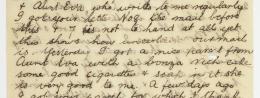 & Aunt Eva who write to me regularly
I got your letter No 9 the mail before
that & 7 is not to hand at all yet
this shows how our mail
is. Yesterday I got a nice parcel from
Aunt Eva with a bonza rich cake
some good cigarettes & soap in it she
is very good to me. A few days ago
I got parcel for which I thank